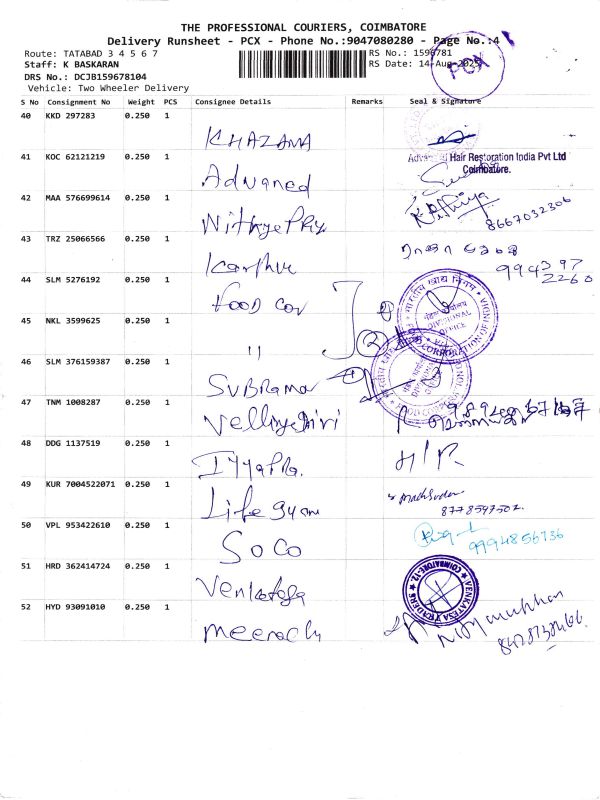 THE PROFESSIONAL COURIERS, COIMBATORE
Delivery Runsheet - PCX - Phone No.:9047080280 - Page No.:4
Route: TATABAD 3 4 5 6 7
RS No.: 1596781
Staff: K BASKARAN
RS Date: 14-Aug-2025
DRS No.: DCJB159678104
Vehicle: Two Wheeler Delivery
PCX
S No Consignment No Weight PCS Consignee Details Remarks Seal & Signature
40 KKD 297283 0.250 1
KHAZANA
41 KOC 62121219 0.250 1
Advanced Hair Restoration India Pvt Ltd
Coimbatore.
Advanced
42 MAA 576699614 0.250 1
NithyePriy
8667032306
43 TRZ 25066566 0.250 1
Karthik
994397
2260
44 SLM 5276192 0.250 1
food Cor
DIVISIONAL OFFICE
FOOD CORPORATION
45 NKL 3599625 0.250 1
"
46 SLM 376159387 0.250 1
SUBRAMA
47 TNM 1008287 0.250 1
Vellingiri
48 DDG 1137519 0.250 1
Iyyappa
H/R
49 KUR 7004522071 0.250 1
Life gyan
8778597502
50 VPL 953422610 0.250 1
SOCO
9994856736
51 HRD 362414724 0.250 1
Venkatesa
VENKATESA TRADERS
COIMBATORE-12
52 HYD 93091010 0.250 1
meenach